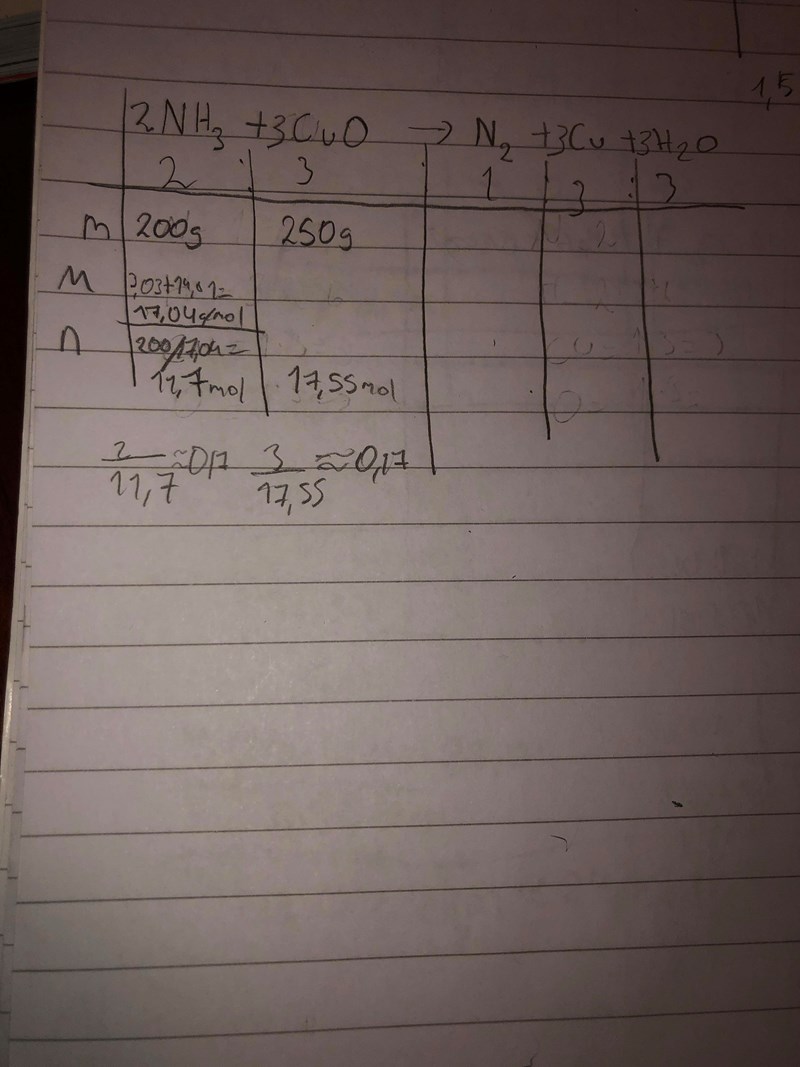 1,5
2NH3 + 3CuO → N2 + 3Cu + 3H2O
2 : 3 1 3 : 3
m 200g 250g
M 3,03+14,01=
17,04g/mol
n 200/17,04=
11,7mol 17,55mol
2/11,7 ≈0,17 3/17,55 ≈0,17